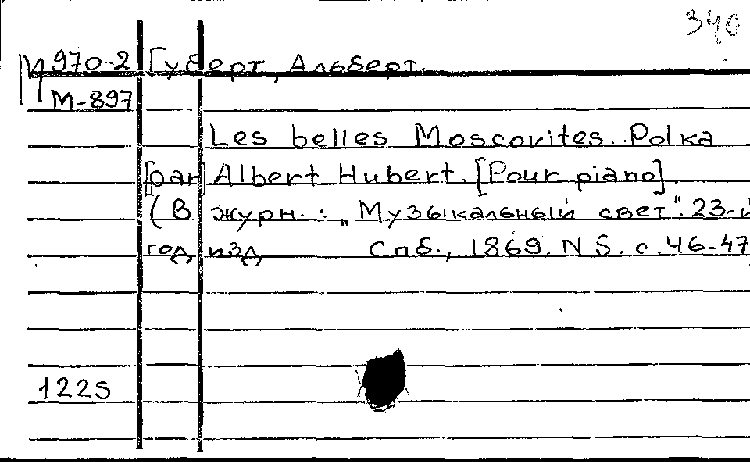 340
970-2 Губерт, Альберт.
М-897
Les belles Moscovites. Polka
[par] Albert Hubert. [Pour piano].
(В журн.: „Музыкальный свет". 23-й
год изд Спб., 1869. N 5. с. 46-47
1225